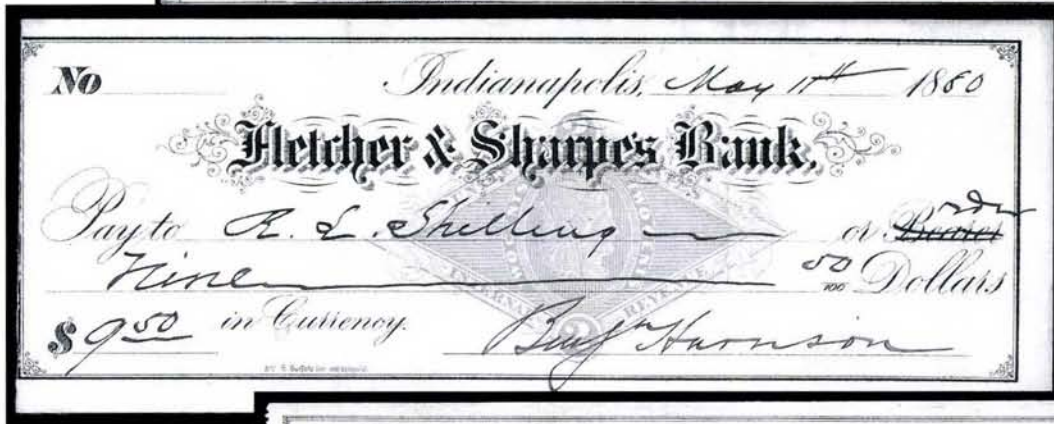 No Indianapolis, May 11th 1880
Fletcher & Sharpe's Bank.
Pay to R. L. Shilling or Bearer order
Nine 50/100 Dollars
$9.50 in Currency.
Benjn Harrison
INTERNAL REVENUE
2